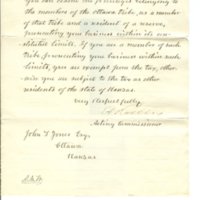 You can claim the privilege belonging to
the members of the Ottawa tribe, as a member of
that tribe and a resident of a reserve,
prosecuting your business within its con-
stituted limits. If you are a member of such
tribe prosecuting your business within such
limits, you are exempt from the tax, other-
wise you are subject to the tax as other
residents of the state of Kansas.
Very respectfully
Acting Commissioner
John T Jones Esq.
Ottawa
Kansas